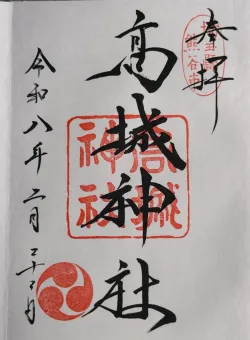 奉拝
埼玉県
熊谷市
高城神社
高城
神社
令和八年二月二十二日